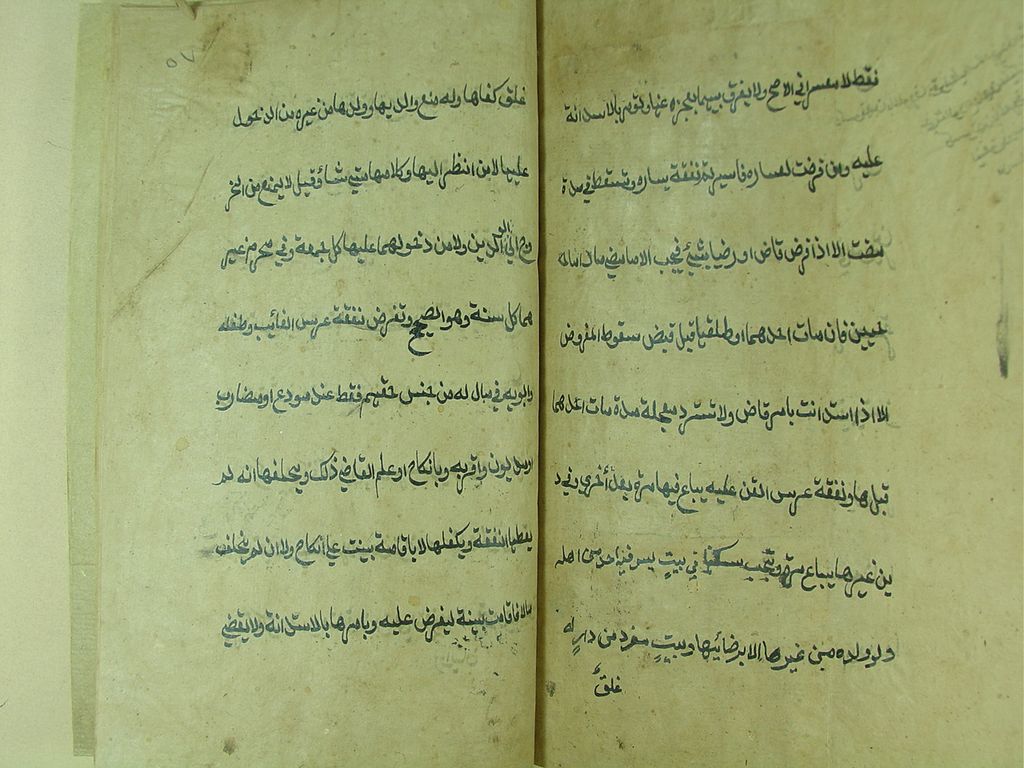 فقط لا معسر في الاصح ولا يفرق بينهما بعجزه عنها وتؤمر بالاستدانة
عليه ومن فرضت لعساره فايسر تم نفقة يساره وتسقط في مدة
مضت الا اذا فرض قاض او رضيا بشئ فيجب لما مضى ما داما
حيين فان مات احدهما او طلقها قبل قبض سقط المفروض
الا اذا استدانت بامر قاض ولا تسترد معجلة مدة مات احدهما
قبلها ونفقة عرس القن عليه يباع فيها مرة بعد أخرى وفي د
ين غيرها يباع مرة وتجب سكنها في بيتٍ ليس فيه احد من اهله
ولو ولده من غيرها الا برضائيها وبيتٍ مفرد من دارٍ له
غلقٌ
٥٧
غلق كفاها وله منع والديها وولدها من غيره من الدخول
عليها لا من النظر اليها وكلامها متى شاؤ وقيل لا يمنع من الخر
وج الى الوالدين ولا من دخولهما عليها كل جمعة وفي محرم غير
هما كل سنة وهو الصحيح وتفرض نفقة عرس الغائب وطفله
وابويه في مال له من جنس حقهم فقط عند مودع او مضارب
او مديون واقر به وبانكاح او علم القاضي ذلك ويحلفها انه لم
يعطها النفقة ويكفلها لا باقامة بينة على انكاح ولا ان لم يخلف
مالا فاقامت بينة ليفرض عليه ويامرها بالاستدانة ولا يقضي